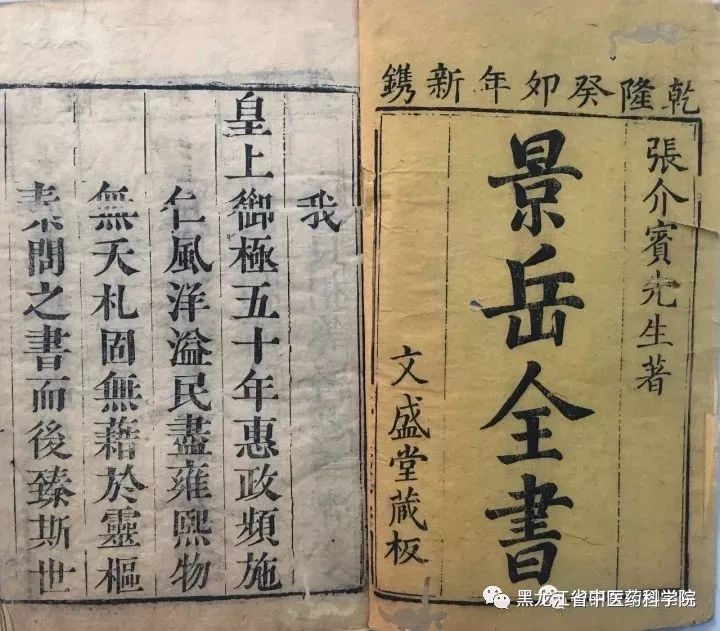 乾隆癸卯年新鐫
張介賓先生著
景岳全書
文盛堂藏板
我
皇上御極五十年惠政頻施
仁風洋溢民盡雍熙物
無夭札固無藉於靈樞
素問之書而後臻斯世
黑龙江省中医药科学院